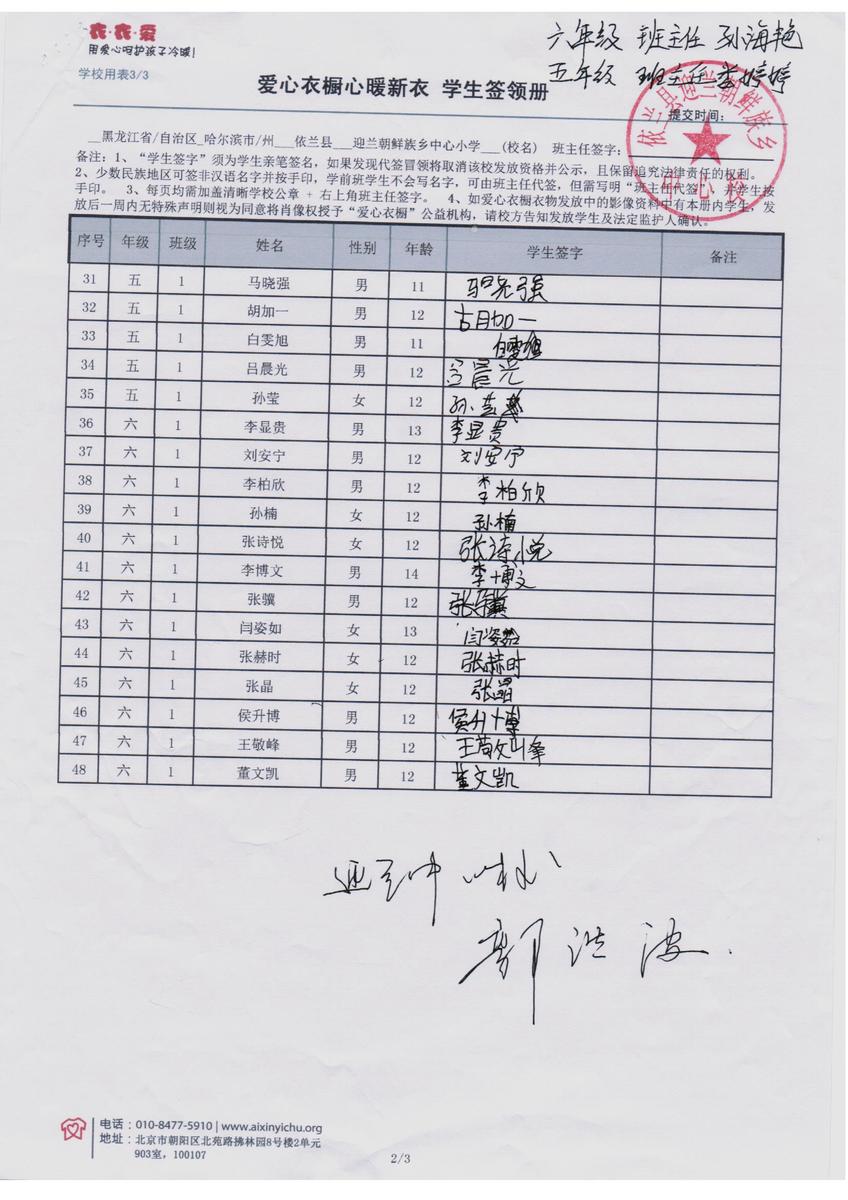 衣·衣·爱
用爱心呵护孩子冷暖!
六年级 班主任 孙海艳
五年级 班主任 娄婷婷
学校用表3/3
爱心衣橱心暖新衣 学生签领册
提交时间:
依兰县迎兰朝鲜族乡
中心校
__黑龙江省/自治区_哈尔滨市/州___依兰县___迎兰朝鲜族乡中心小学___(校名) 班主任签字:
备注:1、“学生签字”须为学生亲笔签名,如果发现代签冒领将取消该校发放资格并公示,且保留追究法律责任的权利。
2、少数民族地区可签非汉语名字并按手印,学前班学生不会写名字,可由班主任代签,但需写明“班主任代签”,并学生按
手印。 3、每页均需加盖清晰学校公章 + 右上角班主任签字。 4、如爱心衣橱衣物发放中的影像资料中有本册内学生,发
放后一周内无特殊声明则视为同意将肖像权授予“爱心衣橱”公益机构,请校方告知发放学生及法定监护人确认。
序号 年级 班级 姓名 性别 年龄 学生签字 备注
31 五 1 马晓强 男 11 马晓强
32 五 1 胡加一 男 12 胡加一
33 五 1 白雯旭 男 11 白雯旭
34 五 1 吕晨光 男 12 吕晨光
35 五 1 孙莹 女 12 孙莹
36 六 1 李显贵 男 13 李显贵
37 六 1 刘安宁 男 12 刘安宁
38 六 1 李柏欣 男 12 李柏欣
39 六 1 孙楠 女 12 孙楠
40 六 1 张诗悦 女 12 张诗悦
41 六 1 李博文 男 14 李博文
42 六 1 张骥 男 12 张骥
43 六 1 闫姿如 女 13 闫姿如
44 六 1 张赫时 女 12 张赫时
45 六 1 张晶 女 12 张晶
46 六 1 侯升博 男 12 侯升博
47 六 1 王敬峰 男 12 王敬峰
48 六 1 董文凯 男 12 董文凯
郭洪波
电话:010-8477-5910 | www.aixinyichu.org
地址:北京市朝阳区北苑路拂林园8号楼2单元
903室,100107
2/3